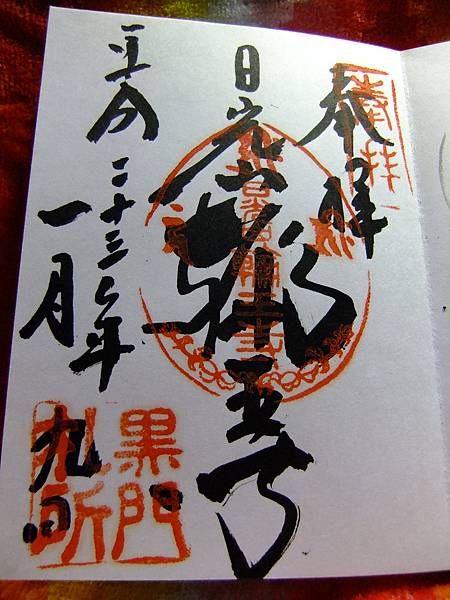 奉拝
日光山
輪王寺
平成二十三年
一月
九日
黒門
札所